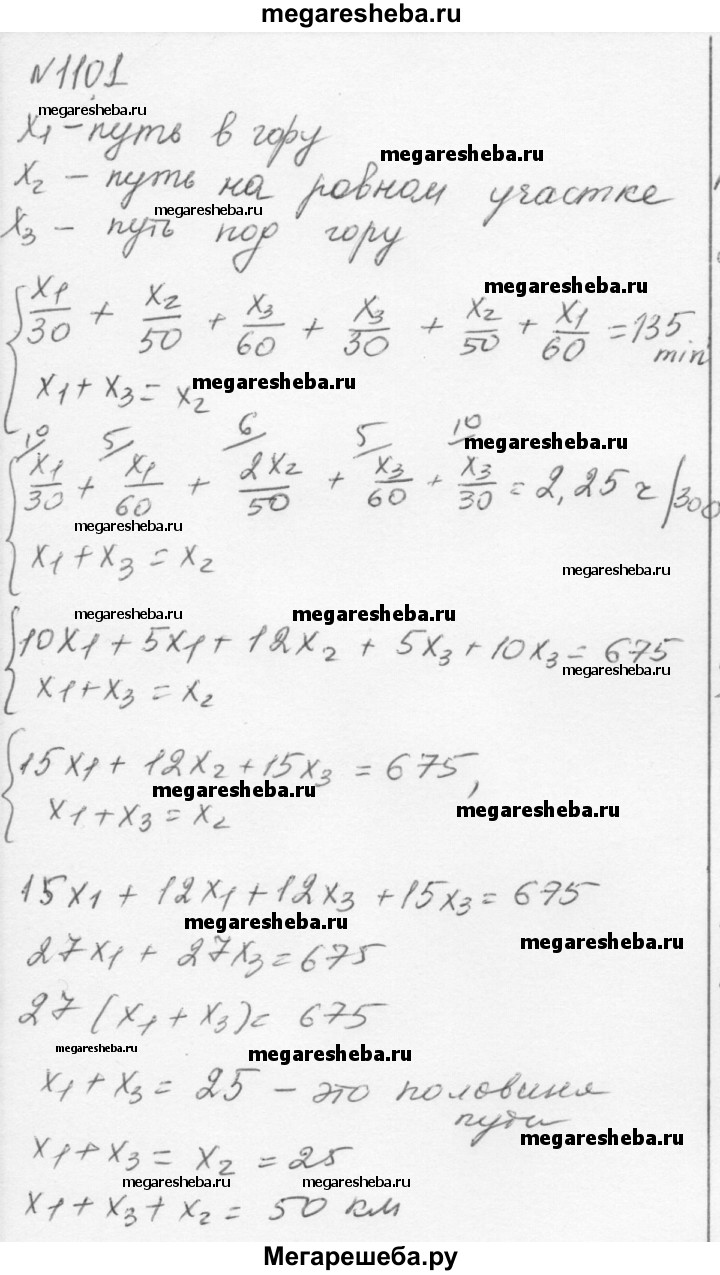 megaresheba.ru
№1101
megaresheba.ru
x₁ – путь в гору
megaresheba.ru
x₂ – путь на ровном участке
megaresheba.ru
x₃ – путь под гору
megaresheba.ru
x₁/30 + x₂/50 + x₃/60 + x₃/30 + x₂/50 + x₁/60 = 135 min
x₁ + x₃ = x₂
megaresheba.ru
10/ 5/ 6/ 5/ 10/
megaresheba.ru
x₁/30 + x₁/60 + 2x₂/50 + x₃/60 + x₃/30 = 2,25 ч |300
megaresheba.ru
x₁ + x₃ = x₂
megaresheba.ru
megaresheba.ru
megaresheba.ru
10x₁ + 5x₁ + 12x₂ + 5x₃ + 10x₃ = 675
megaresheba.ru
x₁ + x₃ = x₂
15x₁ + 12x₂ + 15x₃ = 675,
megaresheba.ru
x₁ + x₃ = x₂
megaresheba.ru
15x₁ + 12x₁ + 12x₃ + 15x₃ = 675
megaresheba.ru
27x₁ + 27x₃ = 675
megaresheba.ru
27(x₁ + x₃) = 675
megaresheba.ru
megaresheba.ru
x₁ + x₃ = 25 – это половина
пути
megaresheba.ru
x₁ + x₃ = x₂ = 25
megaresheba.ru
megaresheba.ru
x₁ + x₃ + x₂ = 50 км
Мегарешеба.ру